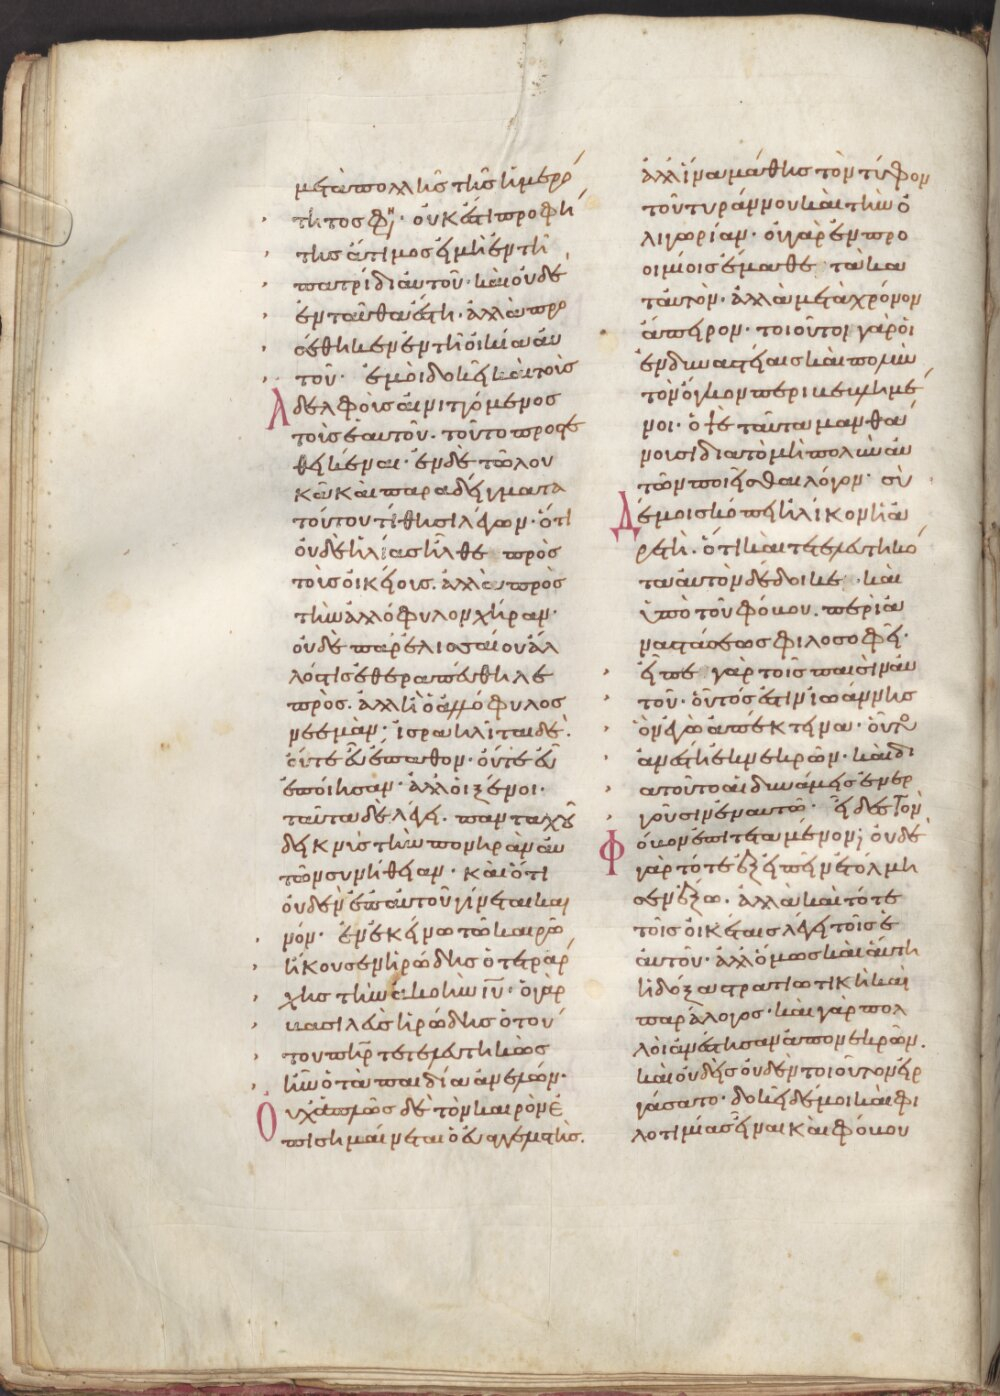 μετὰ πολλῆς τῆς ἡμερό
τητος φη· οὐκ ἔστι προφή
της ἄτιμος εἰ μὴ ἐν τῆ
πατρίδι αὐτοῦ· καὶ οὐδὲ
ἐνταῦθα ἔστη· ἀλλὰ προ
σέθηκεν ἐν τῆ οἰκία αὐ
τοῦ· ἐμοὶ δοκεῖ καὶ τοῖς
ἀδελφοῖς αἰνιττόμενος
τοῖς ἑαυτοῦ. τοῦτο προστε
θεικέναι· ἐν δὲ τῶ λου
κᾶ καὶ παραδείγματα
τούτου τίθησι λέγων· ὅτι
οὐδὲ ἠλίας ἦλθε πρὸς
τοὺς οἰκείους. ἀλλὰ πρὸς
τὴν ἀλλόφυλον χήραν·
οὐδὲ παρ' ἐλισσαίου ἄλ
λος τις ἐθεραπεύθη λε
πρὸς. ἀλλ' ἢ ὁ ἀλλόφυλος
νεεμὰν· ἰσραηλῖται δὲ
οὔτε εὖ ἔπαθον· οὔτε εὖ
ἐποίησαν· ἀλλ' οἱ ξένοι·
ταῦτα δὲ λέγει. πανταχοῦ
δεικνὺς τὴν πονηρὰν αὐ
τῶν συνήθειαν· καὶ ὅτι
οὐδὲν ἐπ' αὐτοῦ γίνεται και
νόν· ἐν ἐκείνω τῶ καιρῶ
ἤκουσεν ἡρώδης ὁ τετράρ
χης τὴν ἀκοὴν ιυ· ὁ γὰρ
βασιλεὺς ἡρώδης ὁ τού
του πηρ τετελευτηκὼς
ἦν ὁ τὰ παιδία ἀνελών·
Οὐχ ἁπλῶς δὲ τὸν καιρὸν ἐ
πισημαίνεται ὁ εὐαγγελιστὴς.
ἀλλ' ἵνα μάθης τὸν τῦφον
τοῦ τυράννου καὶ τὴν ὀ
λιγωρίαν· οὐ γὰρ ἐν προ
οιμίοις ἔμαθε τὰ κα
τ' αὐτὸν· ἀλλὰ μετὰ χρόνον
ἄπειρον· τοιοῦτοι γὰρ οἱ
ἐν δυναστείαις καὶ πολὺν
τὸν ὄγκον περικείμενοι
νοι· ὀψὲ ταῦτα μανθά
νουσι διὰ τὸ μὴ πολὺν αὐ
τῶν ποιεῖσθαι λόγον· σὺ
δέ μοι σκόπει ἡλίκον ἡ ἀ
ρετὴ. ὅτι καὶ τετελευτηκό
τα αὐτὸν δέδοικε· καὶ
ὑπὸ τοῦ φόβου. περὶ ἀ
ναστάσεως φιλοσοφεῖ·
εἶπε γὰρ τοῖς παισὶν αὐ
τοῦ· οὗτός ἐστιν ἰωάννης
ὃν ἐγὼ ἀπέκτεινα· οὗτος
ἀνέστη ἐκ νεκρῶν· καὶ δι
ὰ τοῦτο αἱ δυνάμεις ἐνερ
γοῦσιν ἐν αὐτῶ· εἶδες τὸν
φόβον ἐπιτεταμένον; οὐδὲ
γὰρ τότε ἔξω εἰπεῖν ἐτόλμη
σεν ἔξω· ἀλλὰ καὶ τότε
τοῖς οἰκέταις λέγει τοῖς ἑ
αυτοῦ· ἀλλ' ὅμως καὶ αὕτη
ἡ δόξα στρατιωτικὴ καὶ
παράλογος· καὶ γὰρ πολ
λοὶ ἀνέστησαν ἀπὸ νεκρῶν.
καὶ οὐδεὶς οὐδὲν τοιοῦτον εἰρ
γάσατο· δοκεῖ δέ μοι καὶ φι
λοτιμίας εἶναι καὶ φόβου